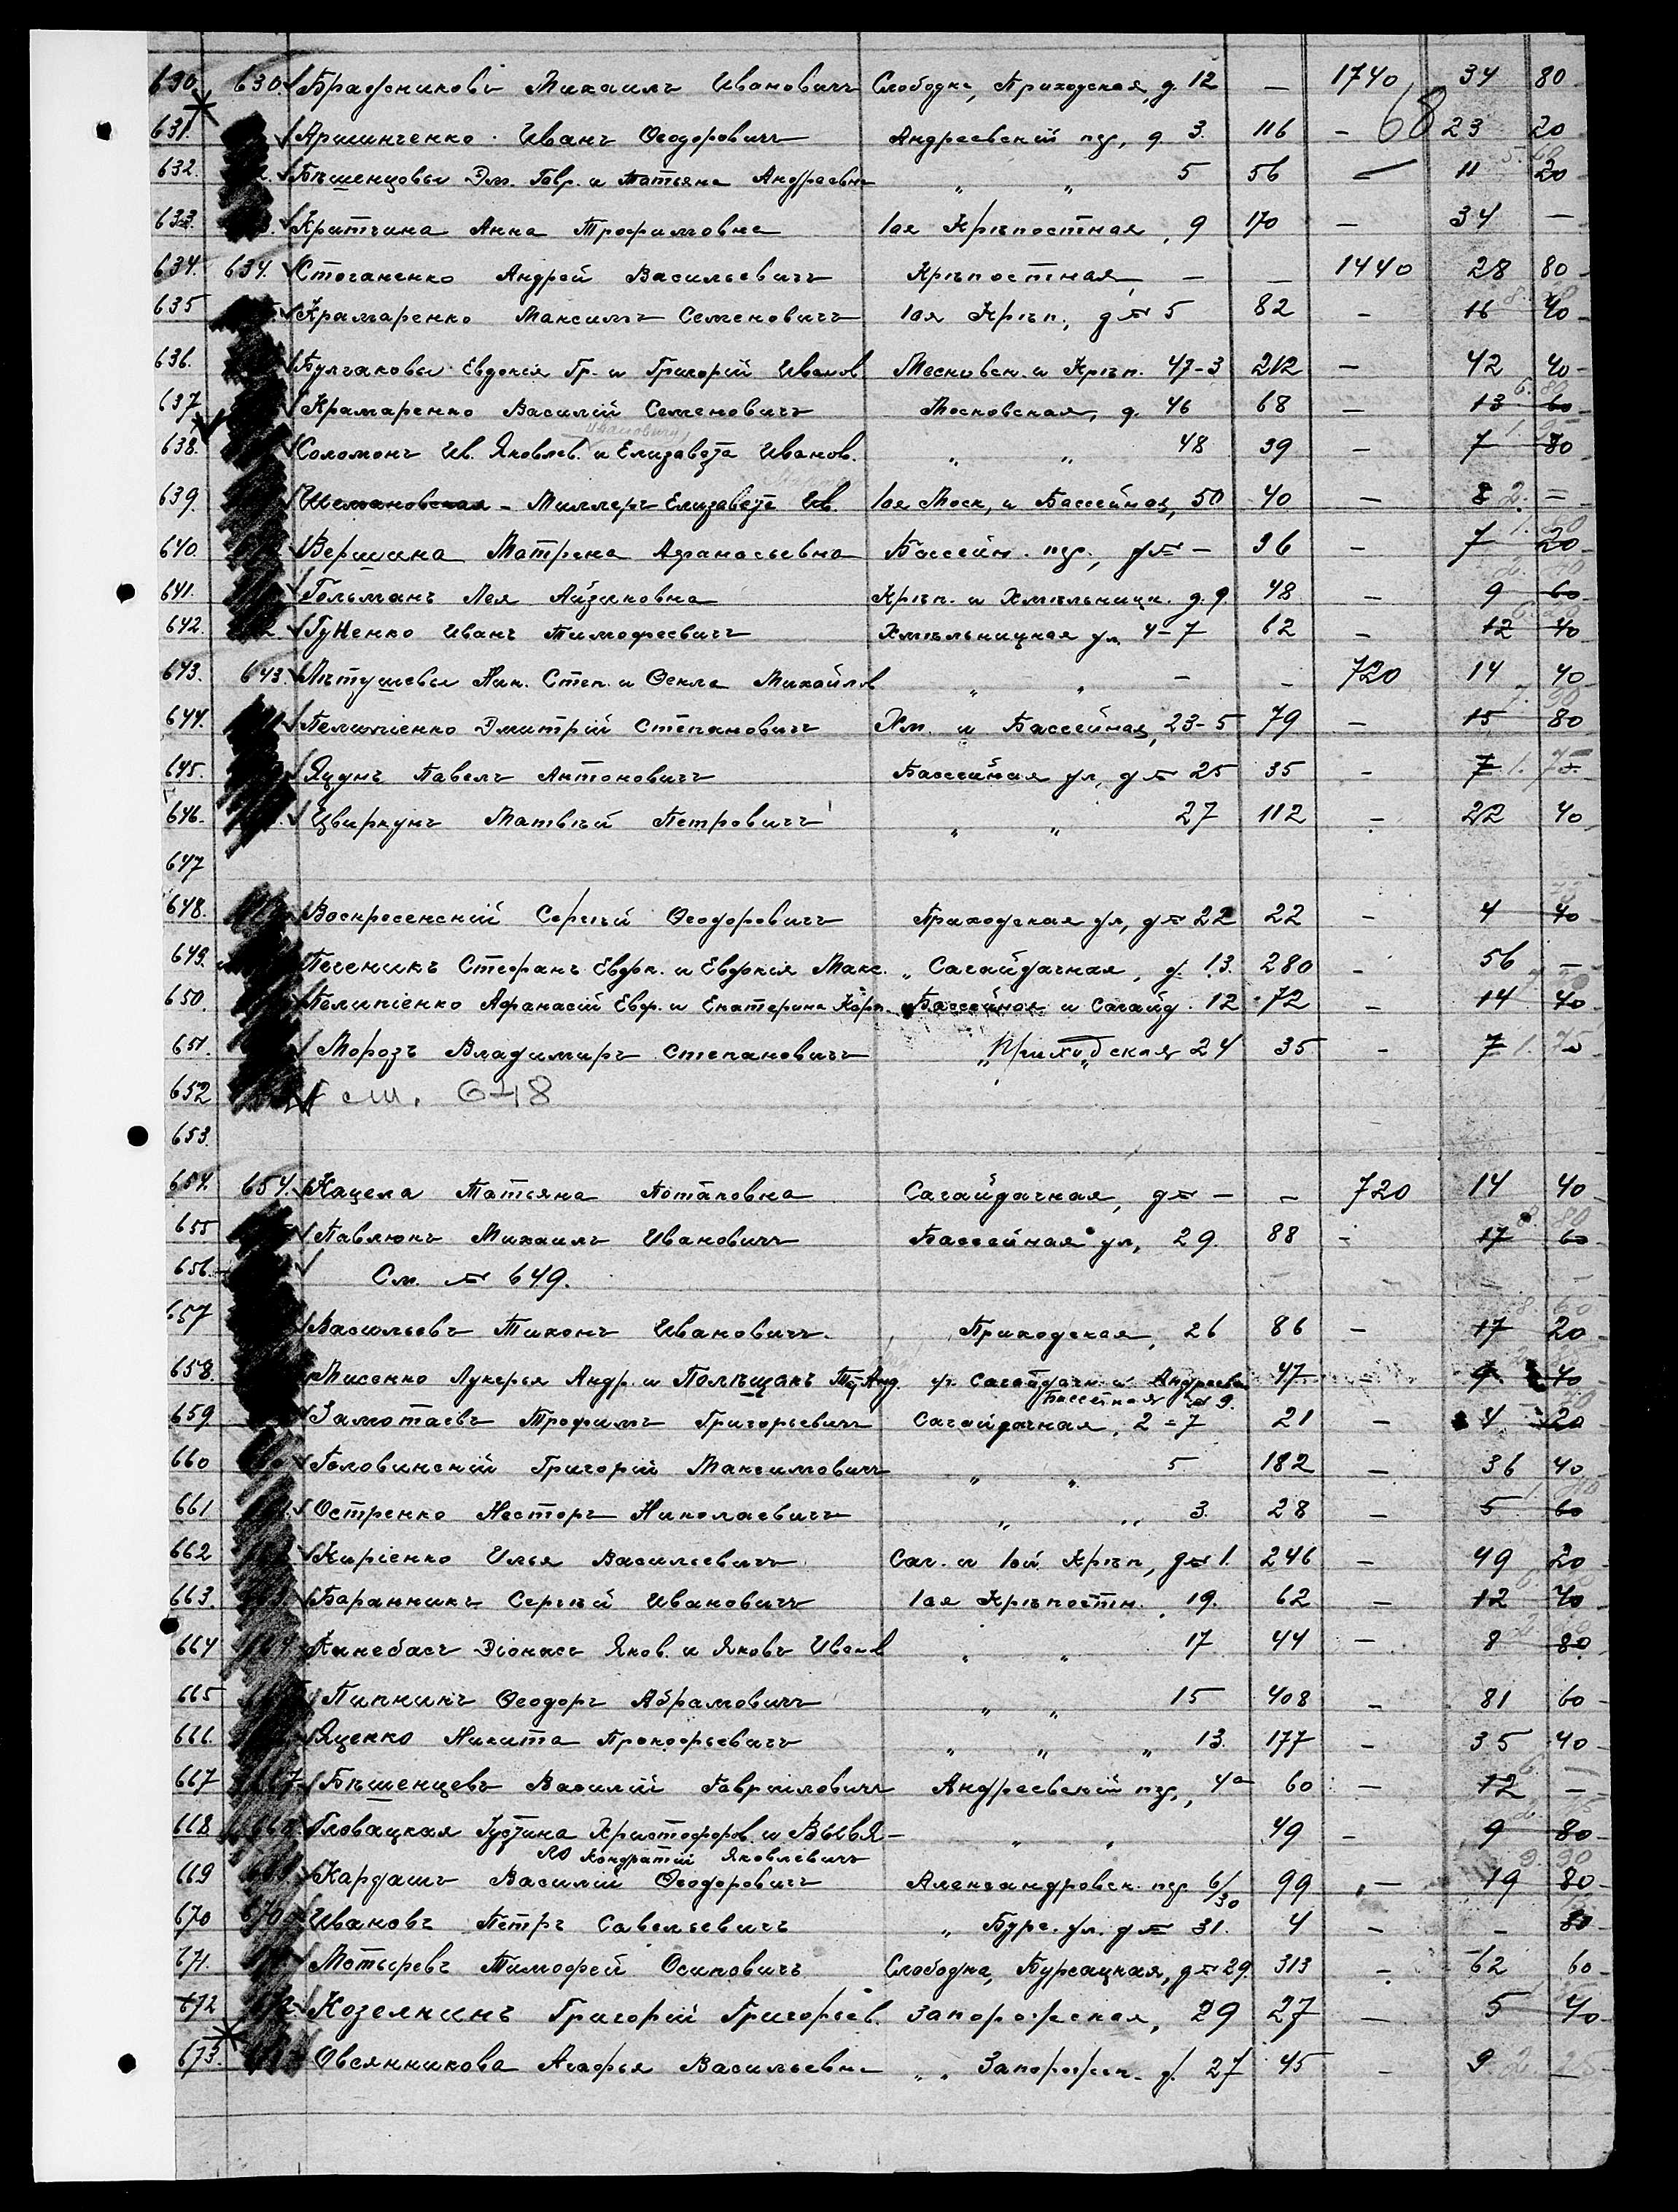 68
630. 630. Бражниковъ Михаилъ Ивановичъ Слободка, Приходская, д. 12 — 1740 34 80
631. Аршинченко Иванъ Ѳеодоровичъ Андреевскій пер, д. 3. 116 — 23 20
632. Бѣшенцовы Дм. Гавр. и Татьяна Андреевна " " 5 56 — 11 20
633. Критчина Анна Трофимовна 1ая Крѣпостная, 9 170 — 34 —
634. 634. Стоганенко Андрей Васильевичъ Крѣпостная, — — 1440 28 80
635 Крамаренко Максимъ Семеновичъ 1ая Крѣп., д № 5 82 — 16 40
636. Булгаковы Евдокія Гр. и Григорій Иванов. Московск. и Крѣп. 47-3 212 — 42 40
637 Крамаренко Василій Семеновичъ Московская, д. 46 68 — 13 60
638. Соломонъ Ив. Яковлев. и Елизавета Иванов. " " 48 39 — 7 80
639. Шемановская - Миллеръ Елизавета Ив. 1ая Моск, и Бассейная, 50 40 — 8 2. —
640. Вершина Матрена Афанасьевна Бассейн. пер., д № — 36 — 7 20
641. Гольманъ Лея Айзиковна Крѣп. и Хмѣльницк. д. 9. 48 — 9 60
642. Гуненко Иванъ Тимофеевичъ Хмѣльницкая ул. 4-7 62 — 12 40
643. 643. Пѣтушевы Ник. Степ. и Ѳекла Михайлов " " — — 720 14 40
644. Пелипіенко Дмитрій Степановичъ Хм. и Бассейная, 23-5 79 — 15 80
645. Яцунъ Павелъ Антоновичъ Бассейная ул, д № 25 35 — 7. 1. 75
646. Цвиркунъ Матвѣй Петровичъ " " 27 112 — 22 40
647
648. Воскресенскій Сергѣй Ѳеодоровичъ Приходская ул, д № 22 22 — 4 40
649. Печеникъ Стефанъ Евдок. и Евдокія Макс. " Сагайдачная, д. 13. 280 — 56 —
650. Пелипіенко Афанасій Евф. и Екатерина Карп. Бассейная и Сагайд. 12 72 — 14 40
651. Морозъ Владимиръ Степановичъ " Приходская 24 35 — 7 1. 75
652 см. 648
653.
654. 654. Кацела Татьяна Потаповна Сагайдачная, д № — — 720 14 40
655 Павлюкъ Михаилъ Ивановичъ Бассейная ул, 29. 88 — 17 60
656. См. № 649. — — — —
657 Васильевъ Тихонъ Ивановичъ. Приходская, 26 86 — 17 20
658. Мисенко Лукерья Андр. и Полѣщакъ Анд. уг. Сагайдачн. и Андреевск 47 — 9 40
Бассейная № 9.
659 Замотаевъ Трофимъ Григорьевичъ Сагайдачная, 2-7 21 — 4 20
660 Головинскій Григорій Максимовичъ " " 5 182 — 36 40
661 Остренко Несторъ Николаевичъ " " 3. 28 — 5 60
662 Киріенко Илья Васильевичъ Саг. и 1ой Крѣп, д № 1. 246 — 49 20
663. Баранникъ Сергѣй Ивановичъ 1ая Крѣпостн. 19. 62 — 12 40
664 Кинебасъ Діонисъ Яков. и Яковъ Иванов " " 17 44 — 8 80
665 Пипкинъ Ѳеодоръ Абрамовичъ " " 15 408 — 81 60
666. Яценко Никита Прокофьевичъ " " " 13. 177 — 35 40
667 Бѣшенцевъ Василій Гавриловичъ Андреевскій пер., 4а 60 — 12 —
668 Гловацкая Густина Христофоров. и Вывя- " " 49 — 9 80
ло Кондратій Яковлевичъ
669 Кардашъ Василій Ѳеодоровичъ Александровск. пер 6/30 99 — 19 80
670 Ивановъ Петръ Савельевичъ " Бурс. ул. д № 31. 4 — — 80
671. Мотыревъ Тимофей Осиповичъ Слободка, Бурсацкая, д № 29. 313 — 62 60
672 Козелкинъ Григорій Григорьев. Запорожская, 29 27 — 5 40
673. Овсянникова Агафья Васильевна " " Запорожск. д. 27 45 — 9. 2. 25